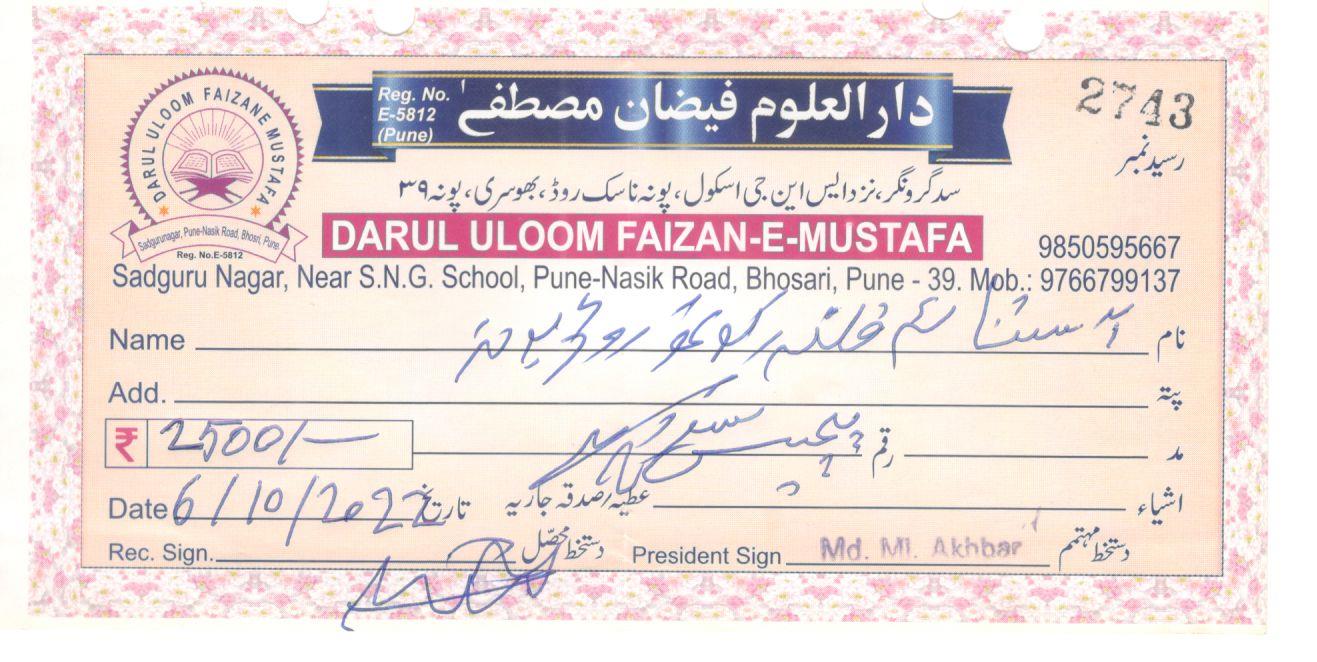 DARUL ULOOM FAIZANE MUSTAFA
Sadgurunagar, Pune-Nasik Road, Bhosri, Pune.
Reg. No.E-5812
Reg. No.
E-5812
(Pune)
دارالعلوم فیضان مصطفےٰ
2743
رسید نمبر
سدگرونگر، نزد ایس این جی اسکول، پونہ ناسک روڈ، بھوسری، پونہ ۳۹
DARUL ULOOM FAIZAN-E-MUSTAFA
9850595667
Sadguru Nagar, Near S.N.G. School, Pune-Nasik Road, Bhosari, Pune - 39. Mob.: 9766799137
Name روڈ پونہ نام
Add. پتہ
₹ 2500/- رقم مد
Date 6/10/2022 تاریخ عطیہ/صدقہ جاریہ اشیاء
Rec. Sign. دستخط محصّل President Sign Md. Ml. Akhbar دستخط مہتمم